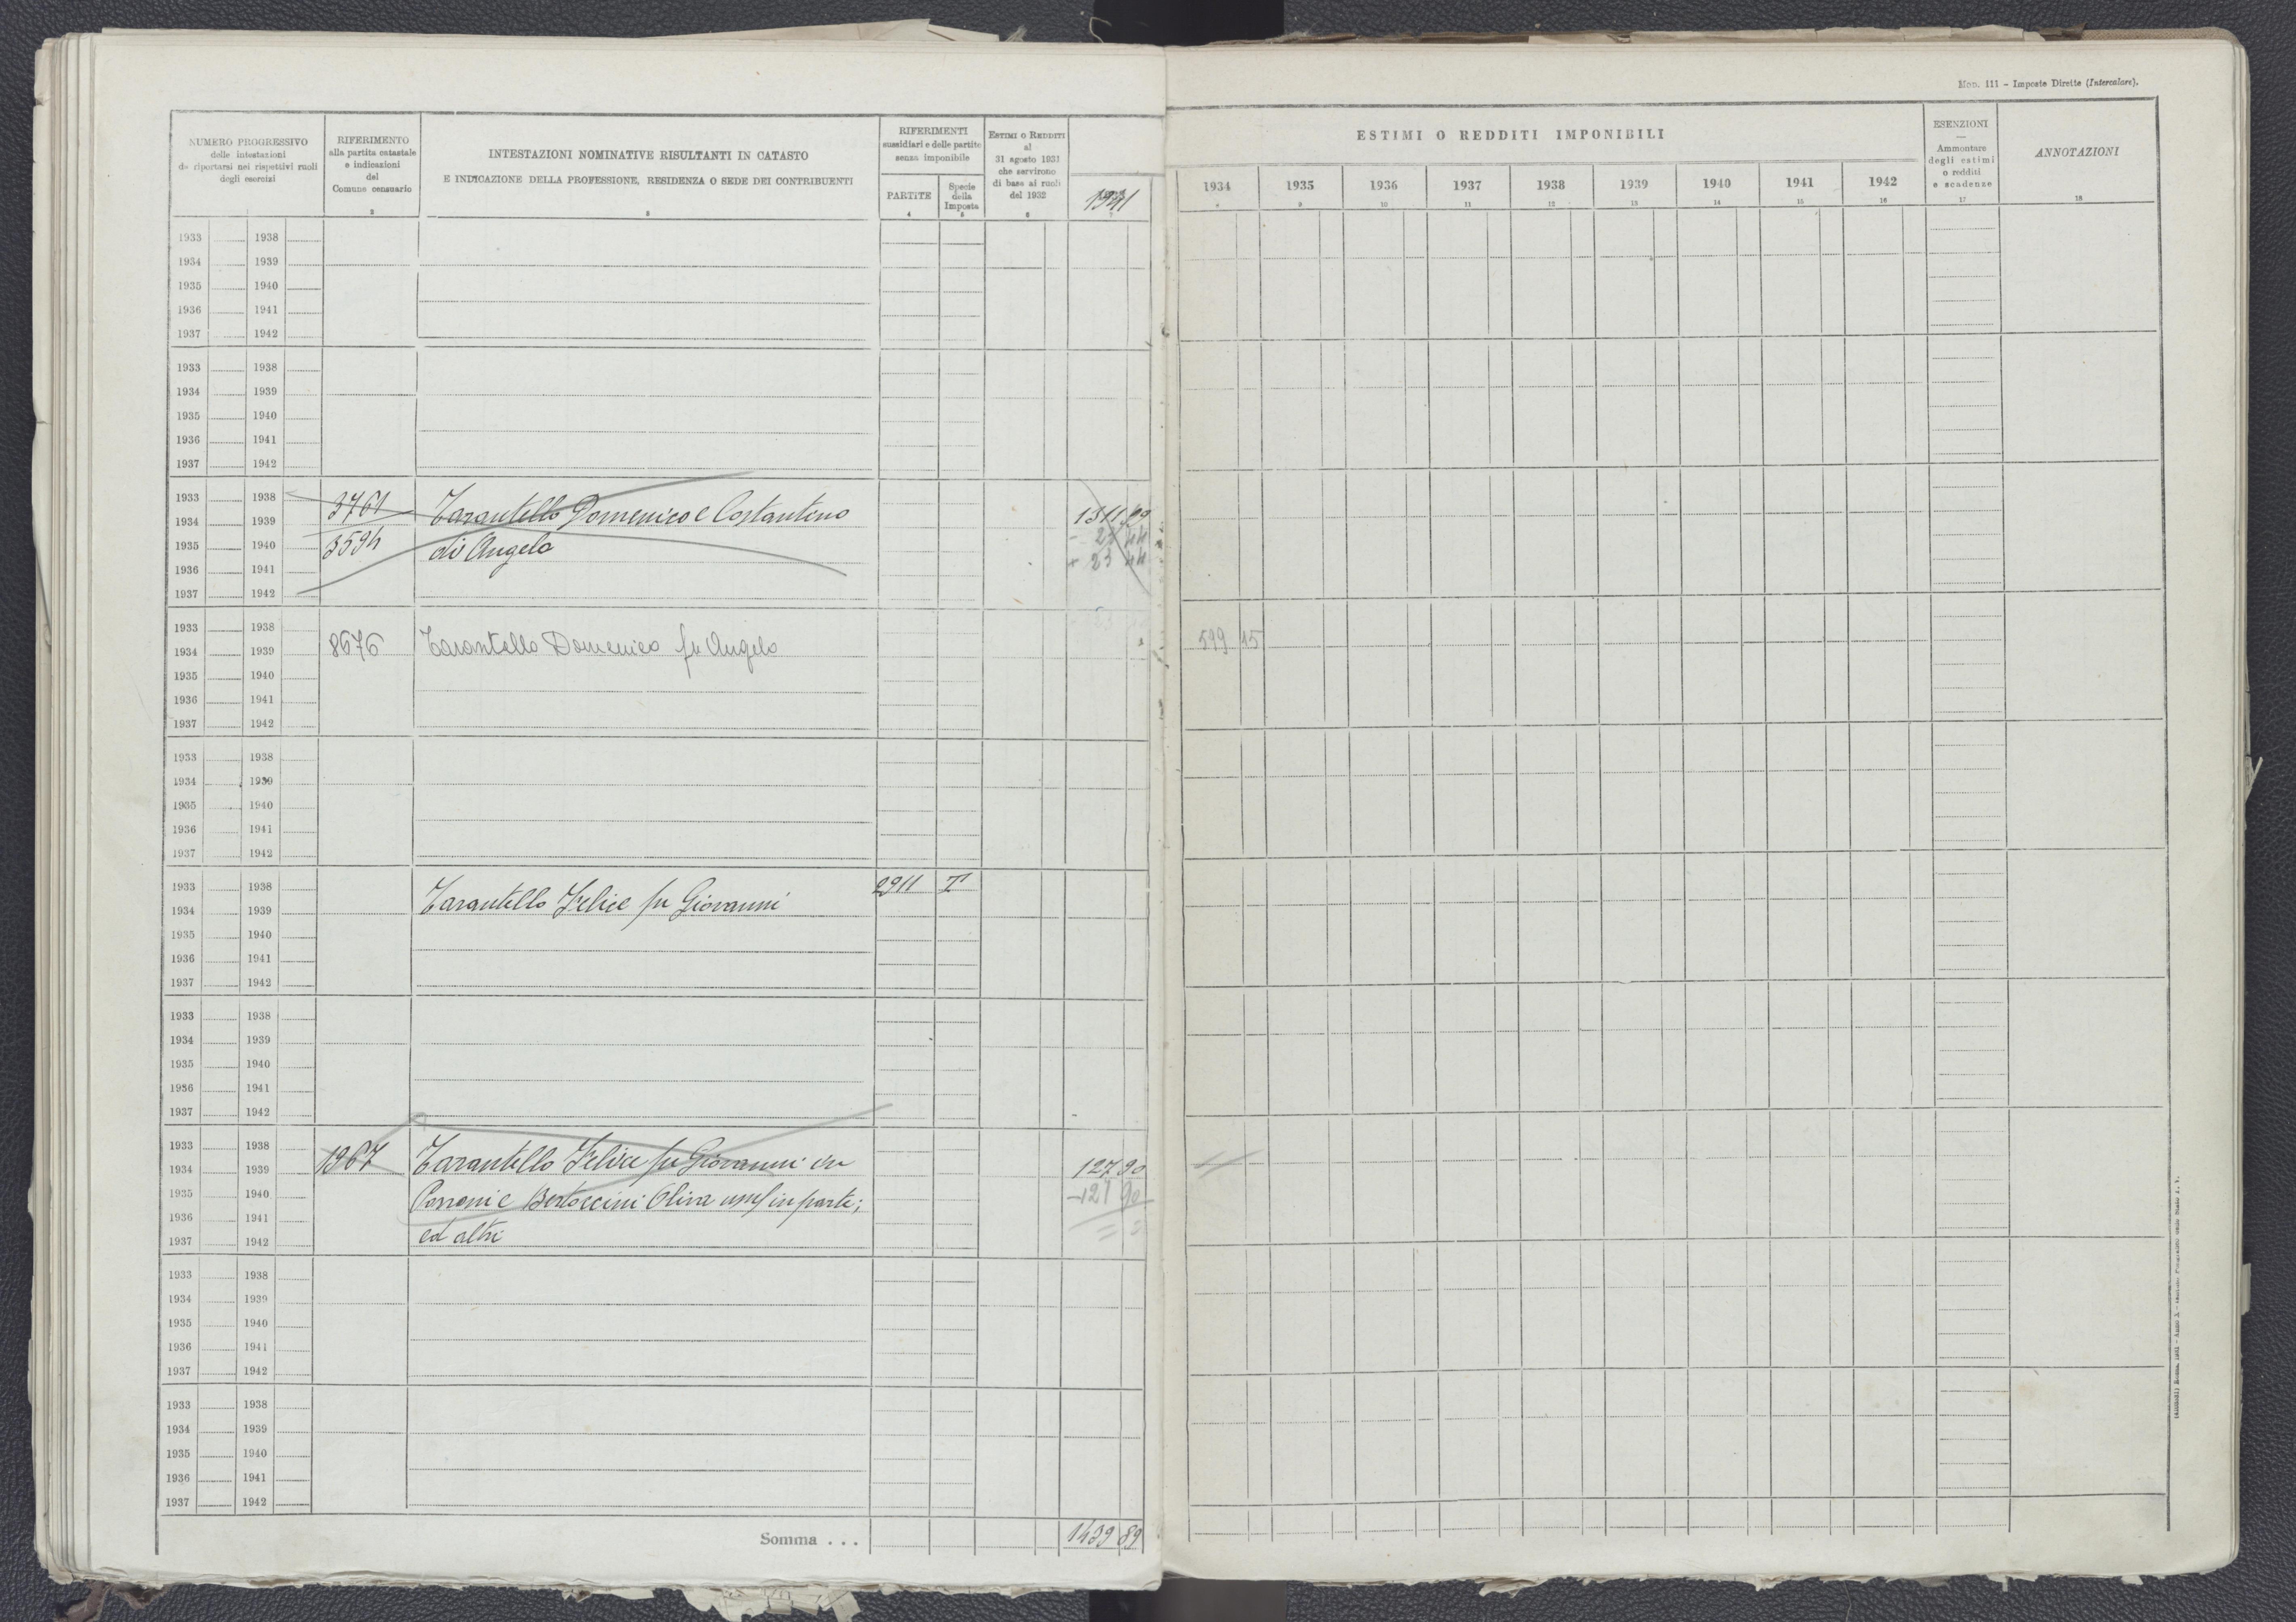 Mod. 111 - Imposte Dirette (Intercalare).
NUMERO PROGRESSIVO
delle intestazioni
da riportarsi nei rispettivi ruoli
degli esercizi
RIFERIMENTO
alla partita catastale
e indicazioni
del
Comune censuario
2
INTESTAZIONI NOMINATIVE RISULTANTI IN CATASTO
E INDICAZIONE DELLA PROFESSIONE, RESIDENZA O SEDE DEI CONTRIBUENTI
3
RIFERIMENTI
sussidiari e delle partite
senza imponibile
PARTITE
4
Specie
della
Imposta
5
ESTIMI O REDDITI
al
31 agosto 1931
che servirono
di base ai ruoli
del 1932
6
ESTIMI O REDDITI IMPONIBILI
1934 1935 1936 1937 1938 1939 1940 1941 1942
9 10 11 12 13 14 15 16
ESENZIONI
—
Ammontare
degli estimi
o redditi
e scadenze
17
ANNOTAZIONI
18
1933 1938
1934 1939
1935 1940
1936 1941
1937 1942
1933 1938
1934 1939
1935 1940
1936 1941
1937 1942
1933 1938
3761 Tarantello Domenico e Costantino 1311,99
1934 1939
- 23 44
1935 1940 3594 di Angelo
+ 23 44
1936 1941
1937 1942
1933 1938
1934 1939 8676 Tarantello Domenico fu Angelo 599 15
1935 1940
1936 1941
1937 1942
1933 1938
1934 1939
1935 1940
1936 1941
1937 1942
1933 1938 2911 T
1934 1939 Tarantello Felice fu Giovanni
1935 1940
1936 1941
1937 1942
1933 1938
1934 1939
1935 1940
1936 1941
1937 1942
1933 1938
1934 1939 1967 Tarantello Felice fu Giovanni in 127 90
1935 1940 Bertoccini Oliva usuf in parte; -127 90
1936 1941
1937 1942 ed altri = =
1933 1938
1934 1939
1935 1940
1936 1941
1937 1942
1933 1938
1934 1939
1935 1940
1936 1941
1937 1942
Somma . . . 1439 89